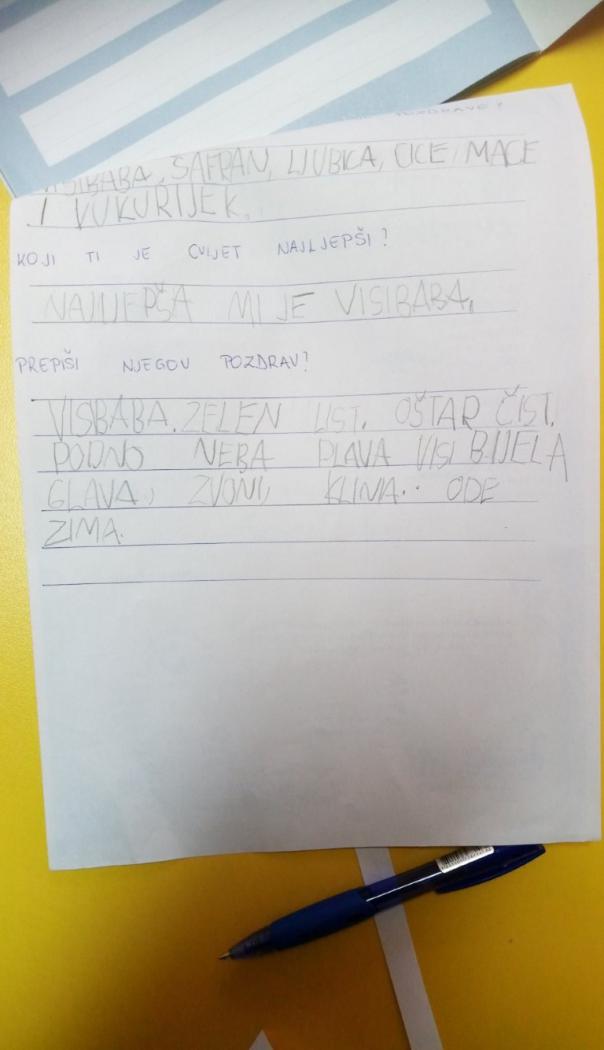 POZDRAVE?
VISIBABA, ŠAFRAN, LJUBICA, CICE MACE
I KUKURIJEK.
KOJI TI JE CVIJET NAJLJEPŠI?
NAJLJEPŠA MI JE VISIBABA.
PREPIŠI NJEGOV POZDRAV?
VISBABA. ZELEN LIST. OŠTAR ČIST.
PODNO NEBA PLAVA VISI BIJELA
GLAVA, ZVONI, KLIMA.. ODE
ZIMA.